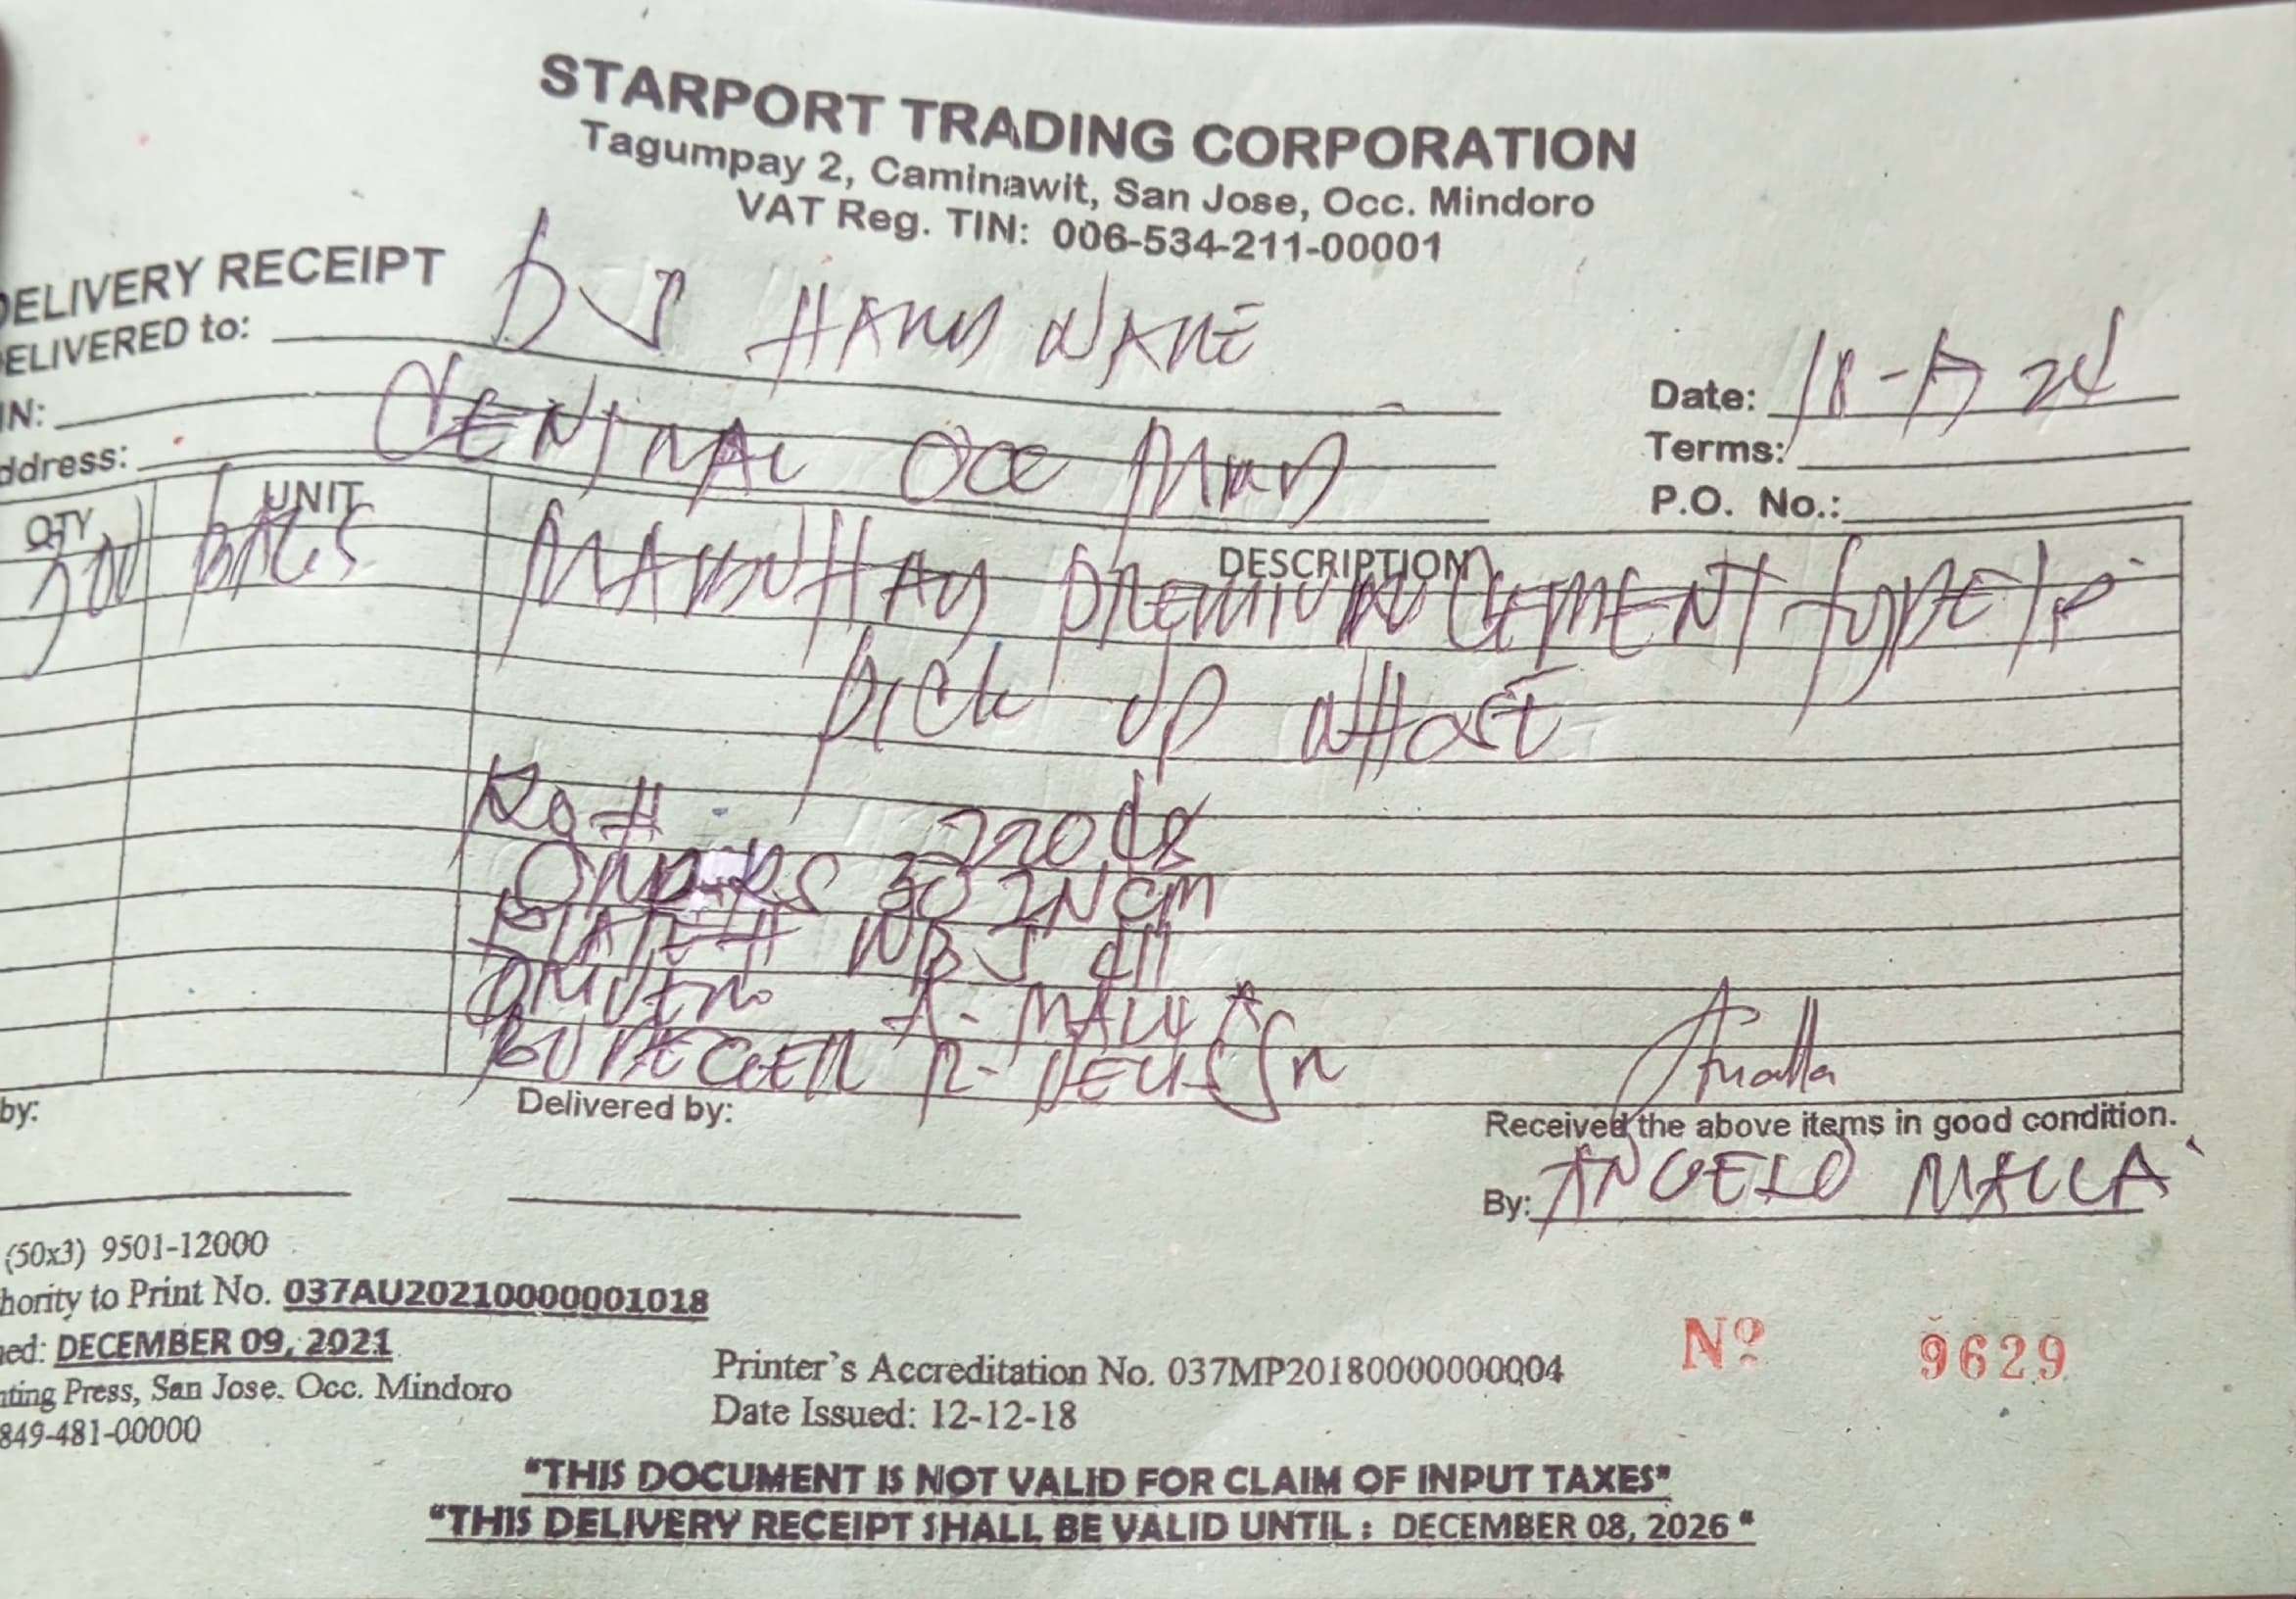 STARPORT TRADING CORPORATION
Tagumpay 2, Caminawit, San Jose, Occ. Mindoro
VAT Reg. TIN: 006-534-211-00001
DELIVERY RECEIPT
DELIVERED to: HARD WARE
IN:
Date:
ddress: CENTRAL OCC MIND
Terms:
P.O. No.:
QTY UNIT DESCRIPTION
BAGS MABUHAY PREMIUM CEMENT TYPE 1P
PICK UP WHOSE
PLATE #
DRIVER A. MALLA
Received the above items in good condition.
by: Delivered by:
By: ANGELO MALLA
(50x3) 9501-12000
hority to Print No. 037AU20210000001018
ed: DECEMBER 09, 2021
nting Press, San Jose. Occ. Mindoro
849-481-00000
Printer's Accreditation No. 037MP20180000000004
Date Issued: 12-12-18
Nº 9629
"THIS DOCUMENT IS NOT VALID FOR CLAIM OF INPUT TAXES"
"THIS DELIVERY RECEIPT SHALL BE VALID UNTIL : DECEMBER 08, 2026"